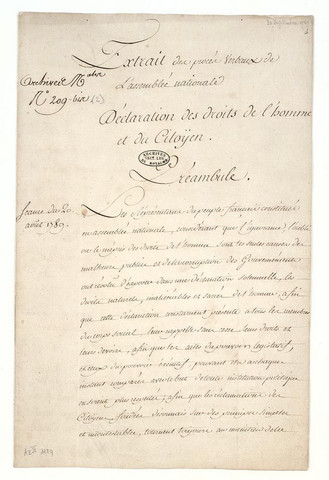 Extrait des procès Verbaux de
L'assemblée nationale
Déclaration des droits de l'homme
et du Citoyen.
Préambule.
Archives Nales
No 209 bis (2)
Séance du 20
août 1789.
Les Représentans du peuple françois constitués
en assemblée nationale, considérant que l'ignorance, l'oubli
ou le mépris des droits de l'homme sont les seules causes des
malheurs publics et de la corruption des Gouvernements
ont résolu d'exposer dans une déclaration solennelle, les
droits naturels, inaliénables et sacrés de l'homme, afin
que cette déclaration constamment présente à tous les membres
du corps social, leur rappelle sans cesse leurs droits et
leurs devoirs, afin que les actes du pouvoir législatif,
et ceux du pouvoir exécutif, pouvant être à chaque
instant comparés avec le but de toute institution politique
en soient plus respectés; afin que les réclamations des
Citoyens fondées désormais sur des principes simples
et incontestables, tournent toujours au maintien de la
AE II 1129